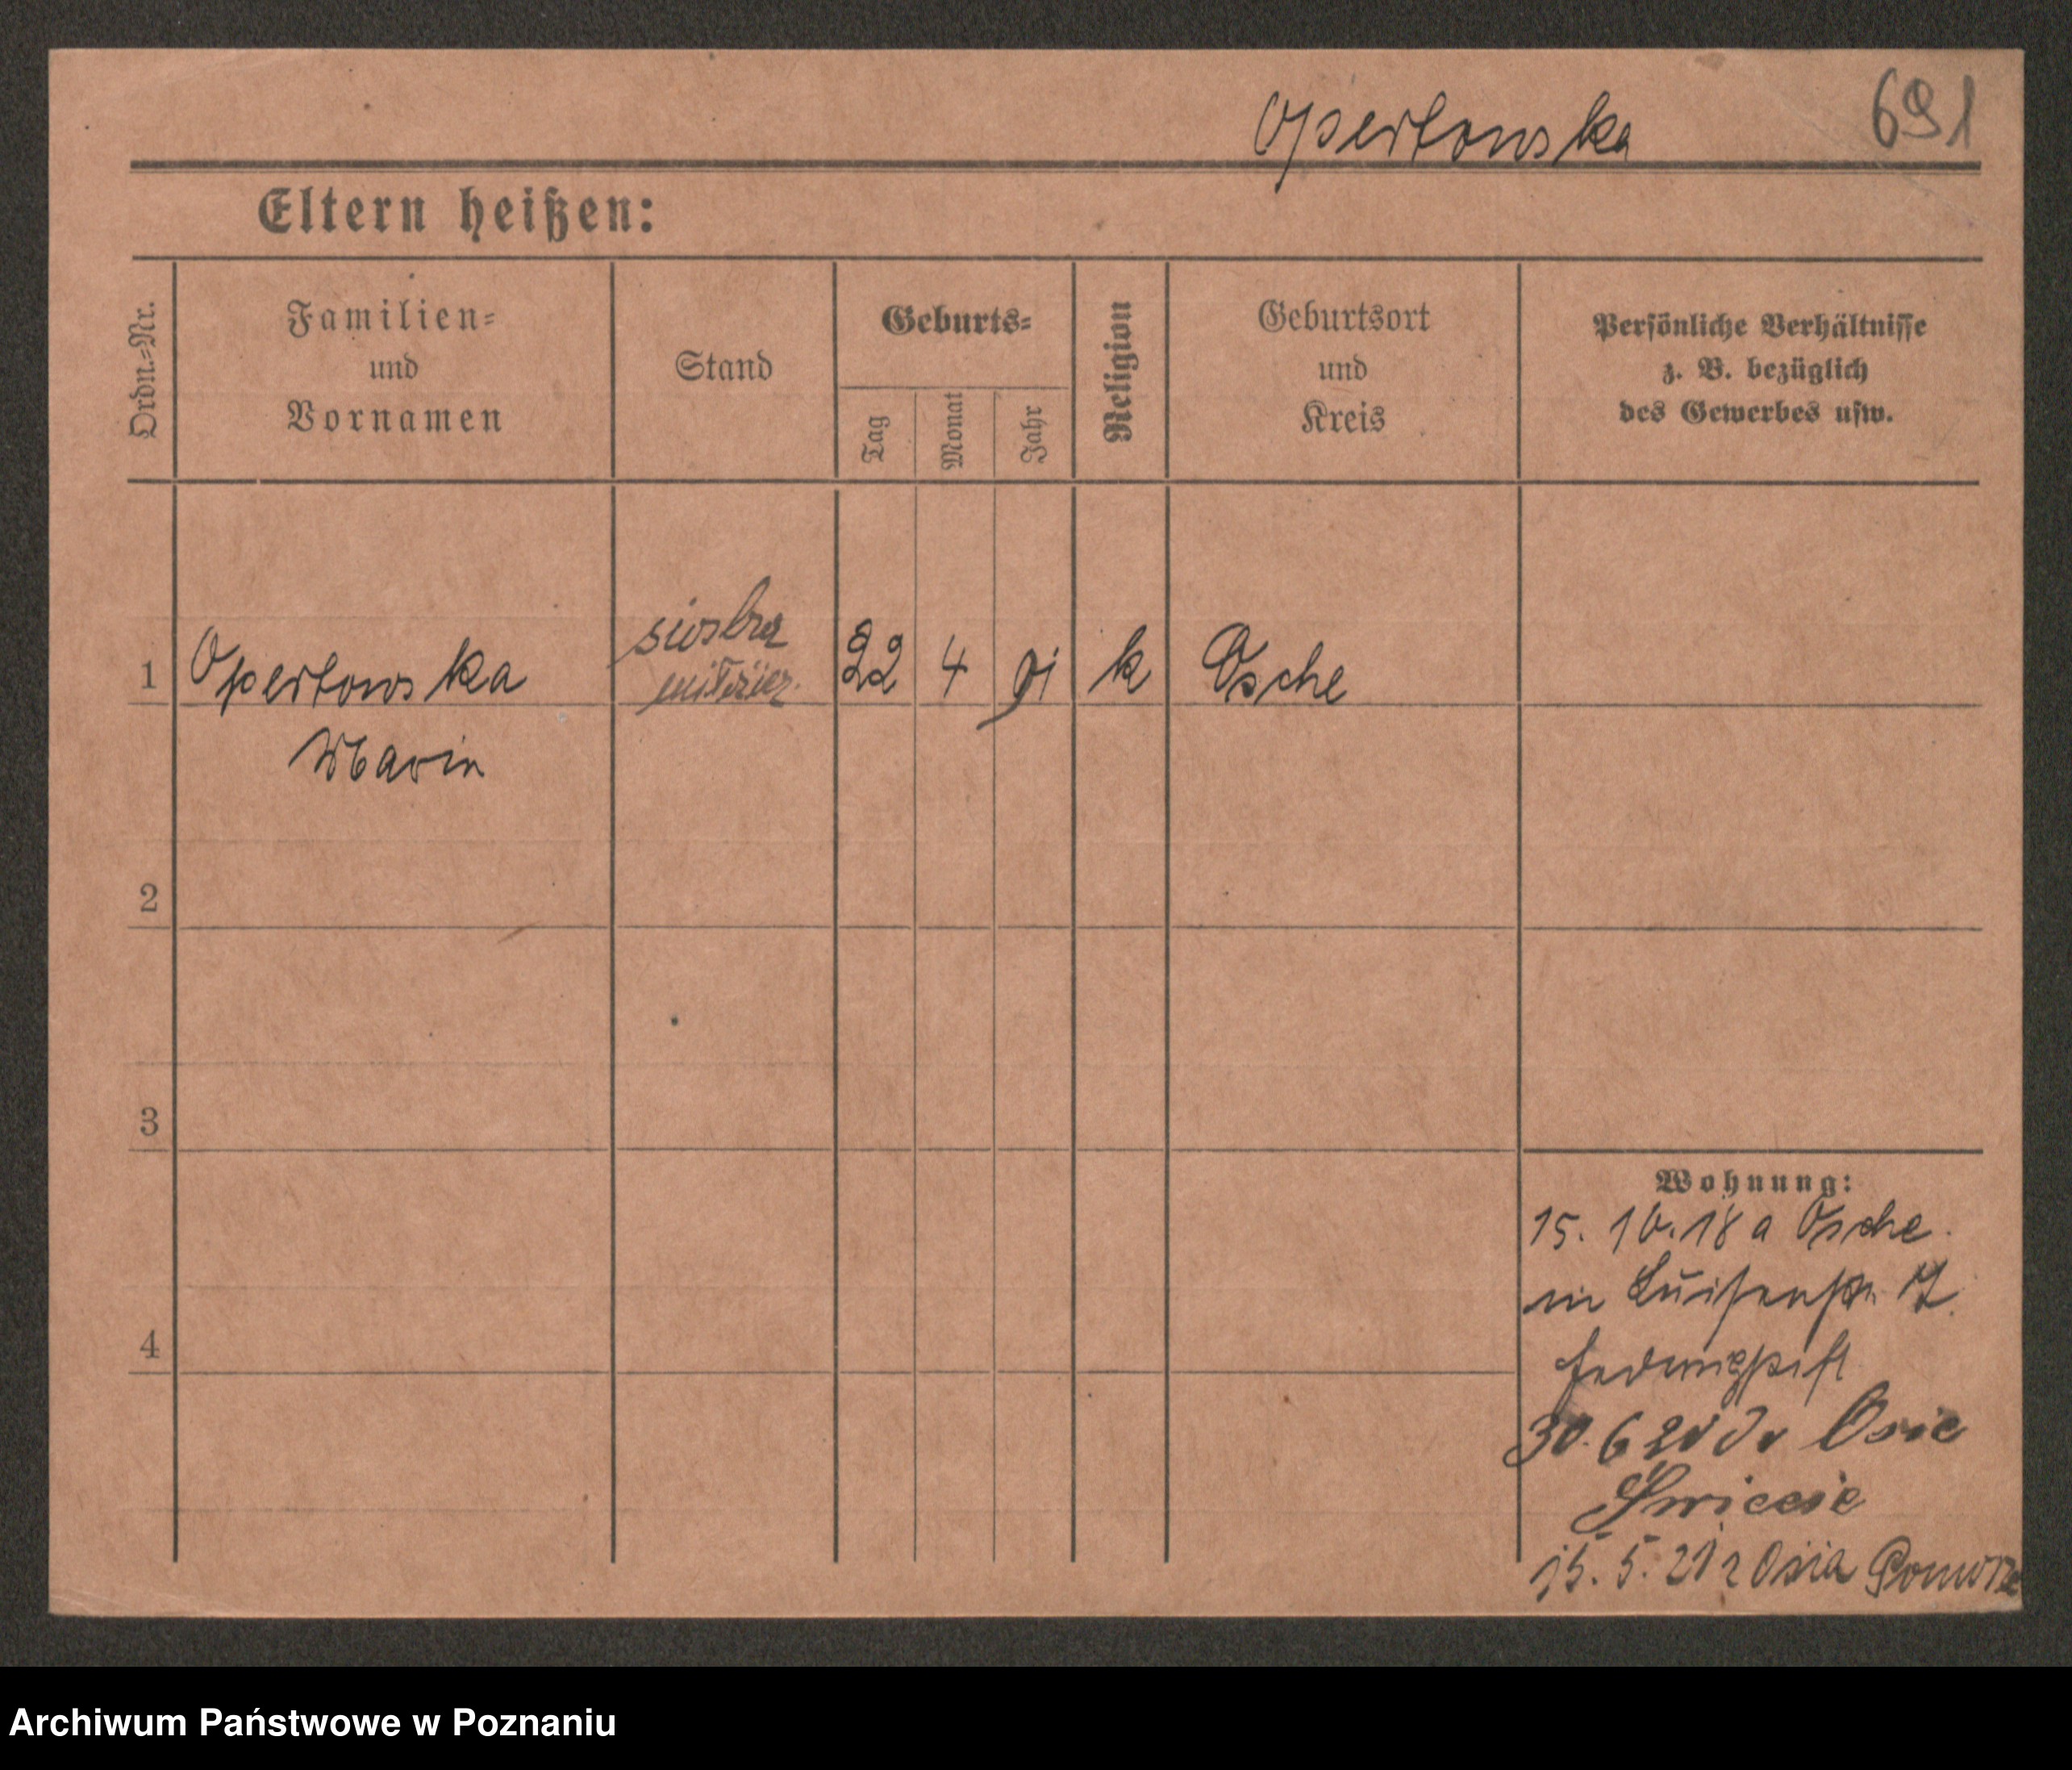 Opertowska 691
Eltern heißen:
Ordn.-Nr.
Familien-
und
Vornamen
Stand
Geburts-
Tag
Monat
Jahr
Religion
Geburtsort
und
Kreis
Persönliche Verhältnisse
z. B. bezüglich
des Gewerbes usw.
siostra
1 Opertowska 22 4 91 k Osche
Maria
2
3
4
Wohnung:
15. 10. 18 a Osche
in Luisenstr. 7
30. 6 20 Osie
Swiecie
15. 5. 21 z Osia Pomorze
Archiwum Państwowe w Poznaniu